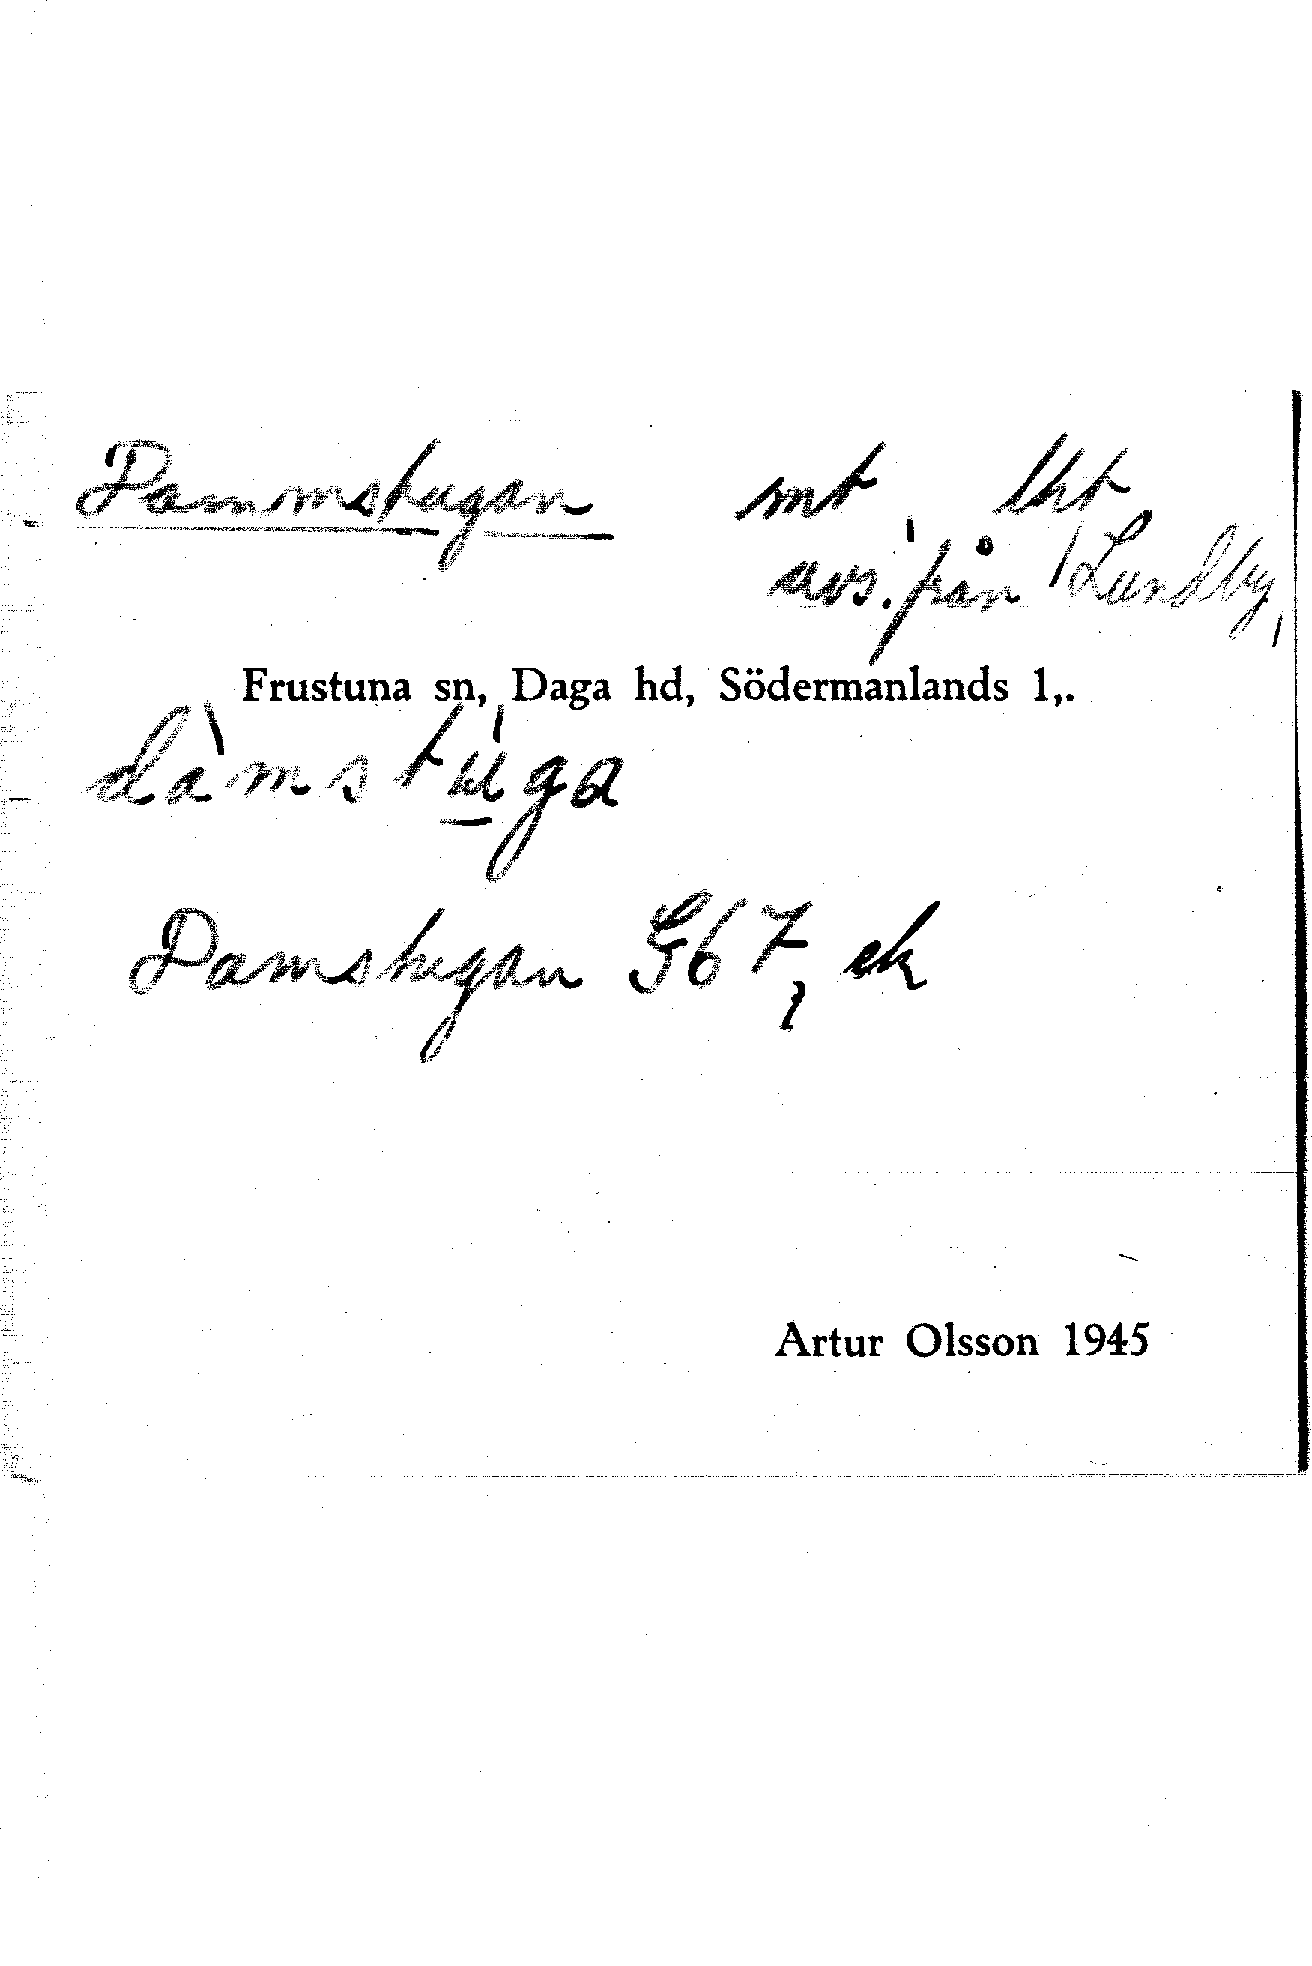 Dammstugan smt, lht
avs. från Lundby,
Frustuna sn, Daga hd, Södermanlands l,.
dàmstúga
Damstugan G67, ek
Artur Olsson 1945